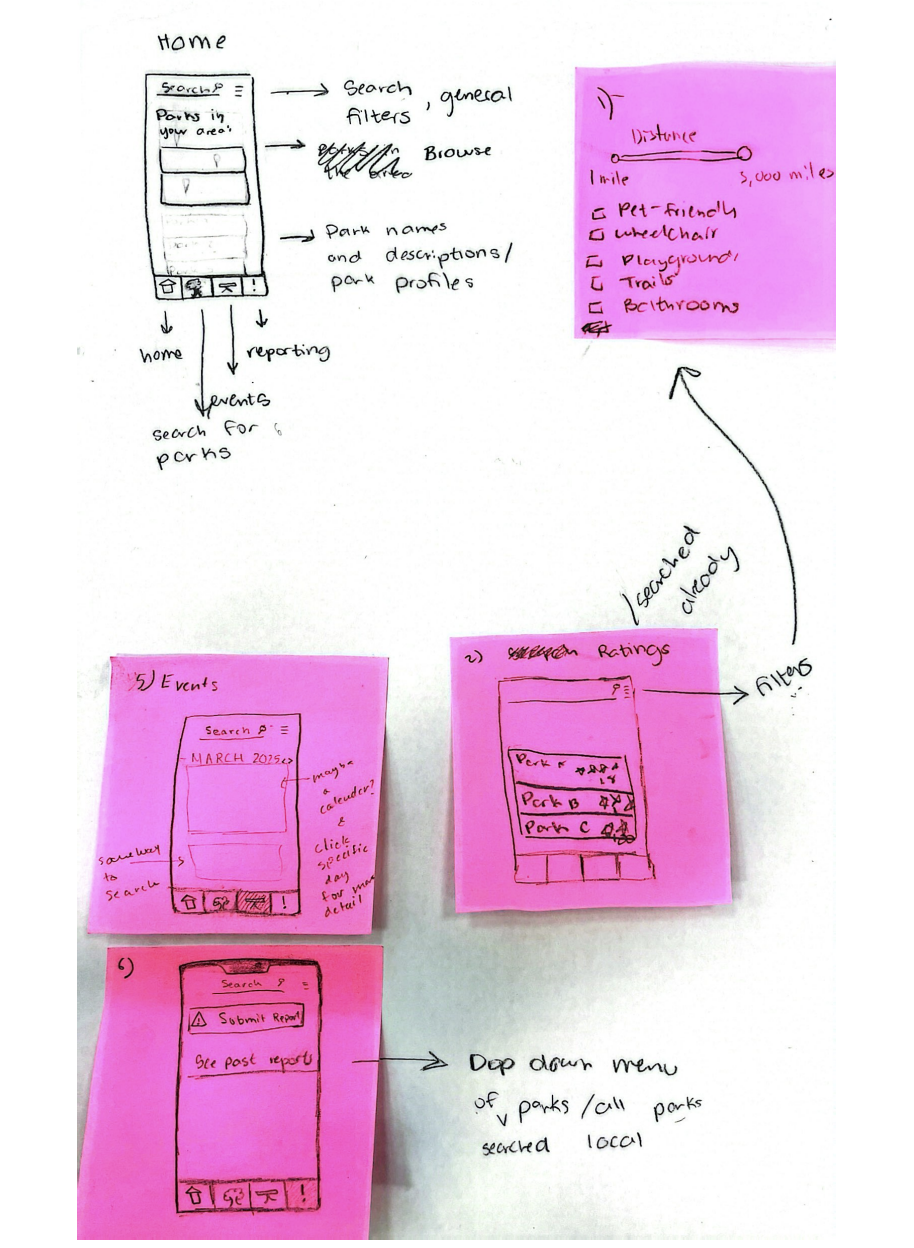 Home
Search
Parks in
your area:
Search
filters, general
Browse
the area
Park names
and descriptions/
park profiles
!
home
reporting
events
search for
parks
1)
Distance
1 mile
5,000 miles
Pet-friendly
wheelchair
Playground
Trails
Bathrooms
searched
already
filters
2) Ratings
Park A
Park B
Park C
5) Events
Search
MARCH 2025 <>
maybe
a
calender?
&
click
specific
day
for more
detail
some way
to
search
!
6)
Search
! Submit Report
See past reports
!
Dop down menu
of parks / all parks
searched local